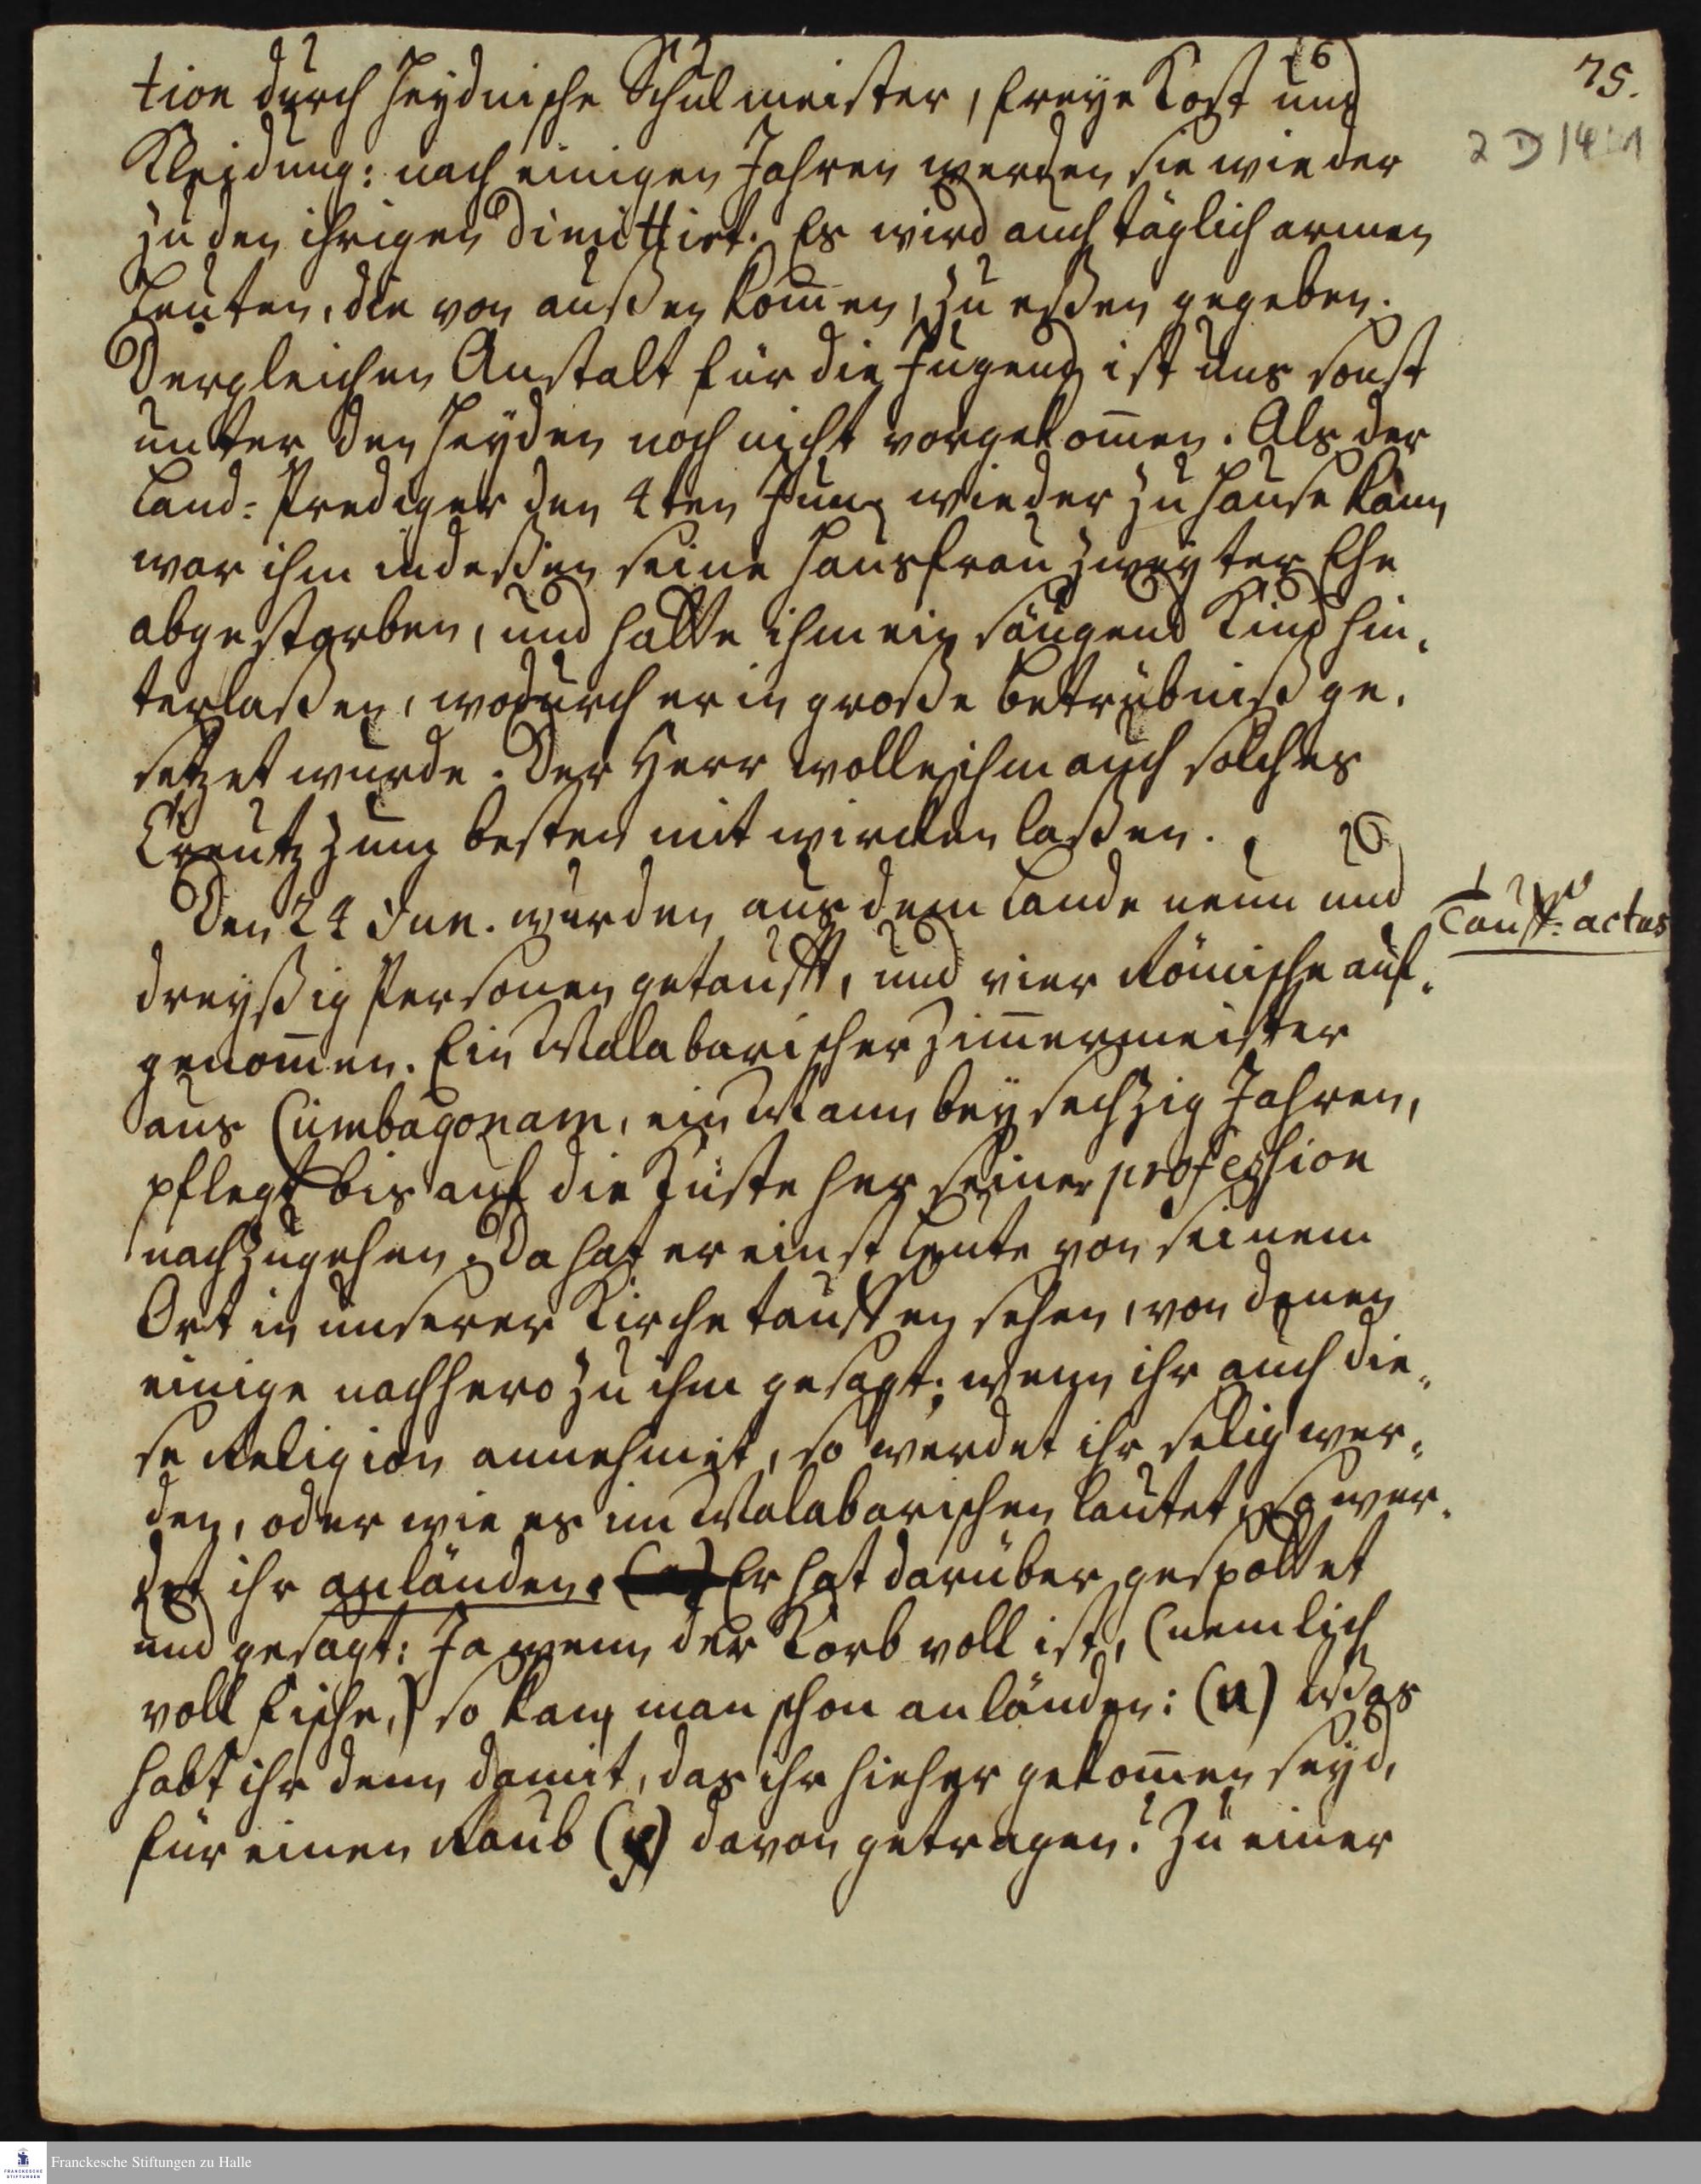 75.
2 D 14
tion durch Heydnische Schulmeister, freye Kost und
Kleidung: nach einigen Jahren werden sie wieder
zu den ihrigen dimittiret. Es wird auch täglich armen
Leuten, die von außen kom̄en, zu eßen gegeben.
Dergleichen Anstalt für die Jugend ist uns sonst
unter den Heyden noch nicht vorgekom̄en. Als der
Land-Prediger den 4ten Jun wieder zu Hause kam
war ihm indeßen seine Hausfrau zweyter Ehe
abgestorben, und hatte ihm ein säugend Kind hin-
terlaßen, wodurch er in große Betrübniß ge-
setzet wurde. Der Herr wolle ihm auch solches
Creutz zum besten mit wircken laßen.
Den 24 Jun. wurden aus dem Lande neun und
Tauff-actus
dreyßig Personen getaufft, und vier Römische auf-
genom̄en. Ein Malabarischer Zim̄ermeister
aus Cumbagonam, ein Mann bey sechzig Jahren,
pflegt bis auf die Küste her seiner profession
nachzugehen. Da hat er einst Leute von seinem
Ort in unserer Kirche tauffen sehen, von denen
einige nachhero zu ihm gesagt: wenn ihr auch die-
se Religion annehmet, so werdet ihr selig wer-
den, oder wie es im Malabarischen lautet, so wer-
det ihr anländen. Er hat darüber gespottet
und gesagt: Ja wenn der Korb voll ist, (nemlich
voll Fische,) so kan man schon anländen: (u) Was
habt ihr denn damit, das ihr hieher gekom̄en seyd,
für einen Raub (x) davon getragen? Zu einer
Franckesche Stiftungen zu Halle